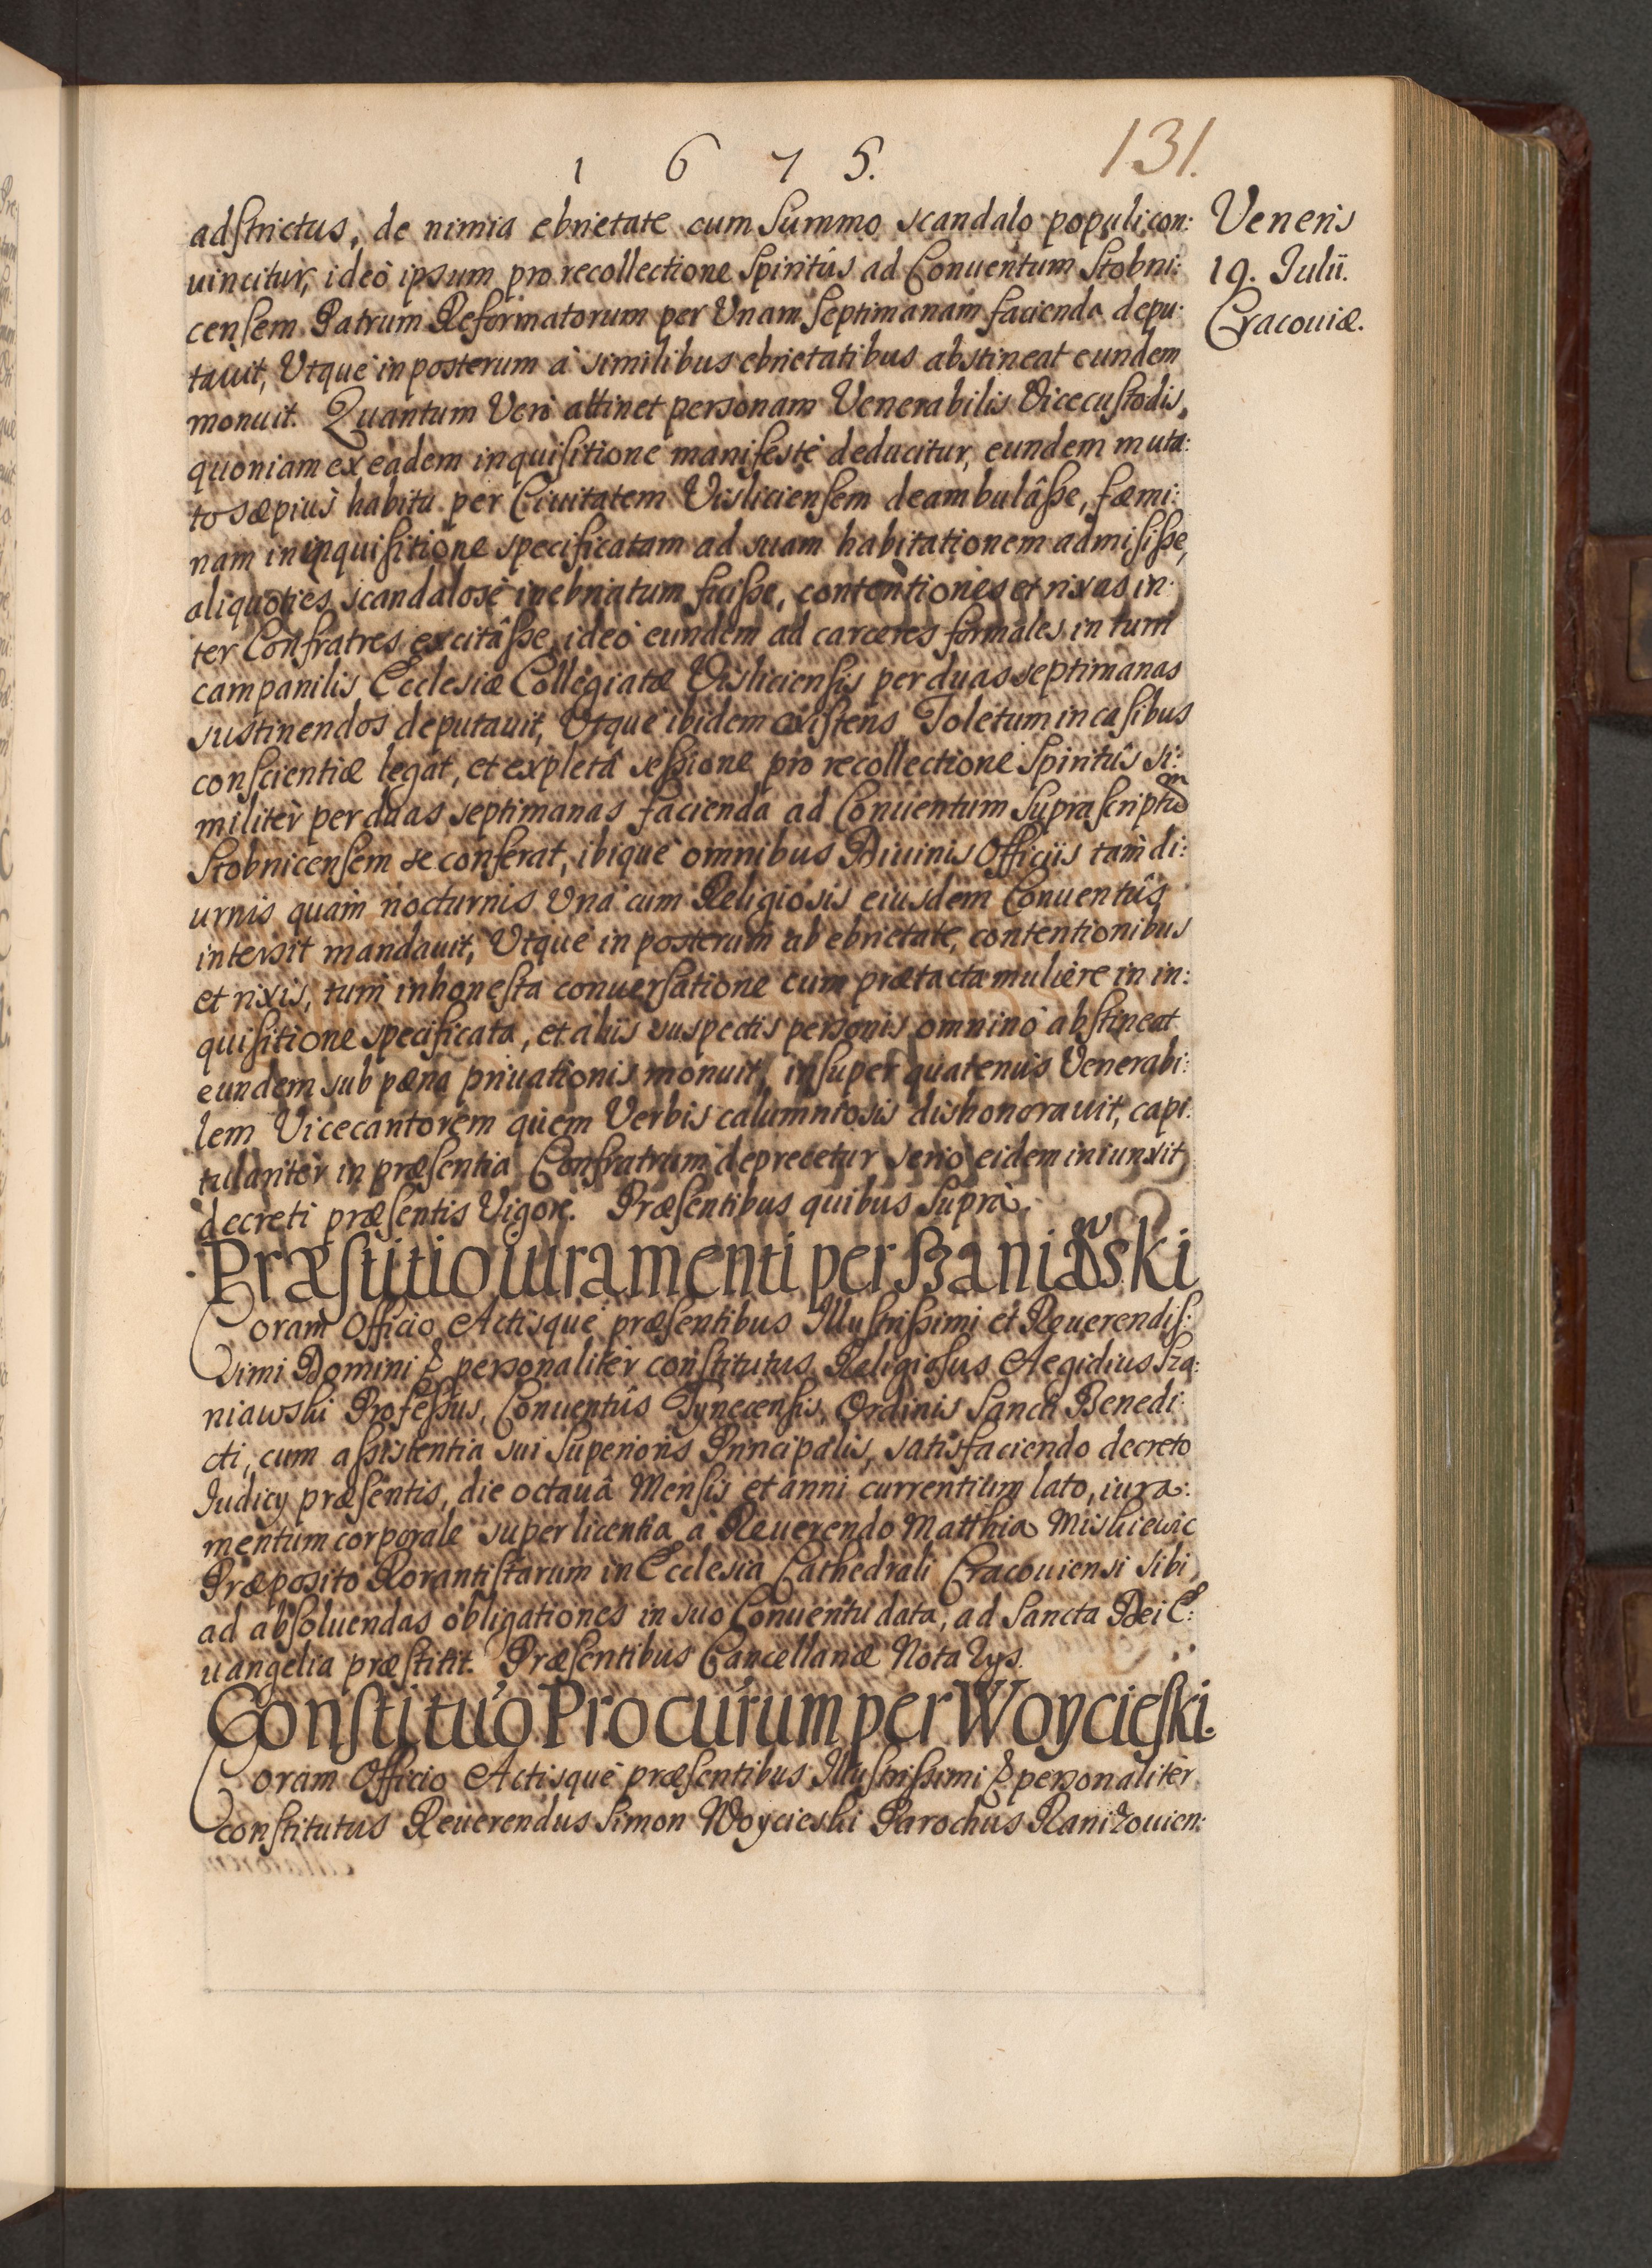 1675.
131.
Veneris
19. Iulii.
Cracouiæ.
adstrictus, de nimia ebrietate cum summo scandalo populi con:
uincitur, ideò ipsum pro recollectione Spiritûs ad Conuentum Stobni:
censem Patrum Reformatorum per Vnam septimanam facienda depu:
tauit, Vtque in posterum à similibus ebrietatibus abstineat eundem
monuit. Quantum Verò attinet personam Venerabilis Vicecustodis,
quoniam ex eâdem inquisitione manifestè deducitur, eundem muta:
to sæpius habitu per Ciuitatem Visliciensem deambulâsse, fæmi:
nam in inquisitione specificatam ad suam habitationem admisisse,
aliquoties scandalosè inebriatum fuisse, contentiones et rixas in:
ter Confratres excitâsse, ideò eundem ad carceres formales in turri
campanilis Ecclesiæ Collegiatæ Visliciensis per duas septimanas
sustinendos deputauit, Vtque ibidem existens Toletum in casibus
conscientiæ legat, et expletâ sessione pro recollectione Spiritûs si:
militèr per duas septimanas facienda ad Conuentum suprascriptum
Stobnicensem se conferat, ibique omnibus Diuinis Officiis tàm di:
urnis quàm nocturnis Vnà cum Religiosis eiusdem Conuentûs
intersit mandauit, Vtque in posterum ab ebrietate, contentionibus
et rixis, tum inhonesta conuersatione cum prætacta muliere in in:
quisitione specificata, et aliis suspectis personis omninò abstineat
eundem sub pæna priuationis monuit, insuper quatenus Venerabi:
lem Vicecantorem quem Verbis calumniosis dishonorauit, capi:
tularitèr in præsentia Confratrum deprecetur seriò eidem iniunxit
decreti præsentis Vigore. Præsentibus quibus suprà.
Præstitio iuramenti per Szaniawski
Coram Officio Actisque præsentibus Illustrissimi et Reuerendis:
simi Domini & personalitèr constitutus Religiosus Aegidius Sza:
niawski Professus, Conuentûs Tynecensis, Ordinis Sancti Benedi:
cti, cum assistentia sui Superioris Principalis, satisfaciendo decreto
Iudicy præsentis, die octauâ Mensis et anni currentium lato, iura:
mentum corporale super licentia à Reuerendo Matthia Miskiewic
Præposito Rorantistarum in Ecclesia Cathedrali Cracouiensi sibi
ad absoluendas obligationes in suo Conuentu data, ad Sancta Dei E:
uangelia præstitit. Præsentibus Cancellariæ Notarys.
Constituo Procurum per Woycieski.
Coram Officio Actisque præsentibus Illustrissimi & personalitèr
constitutus Reuerendus Simon Woycieski Parochus Ranizouien: